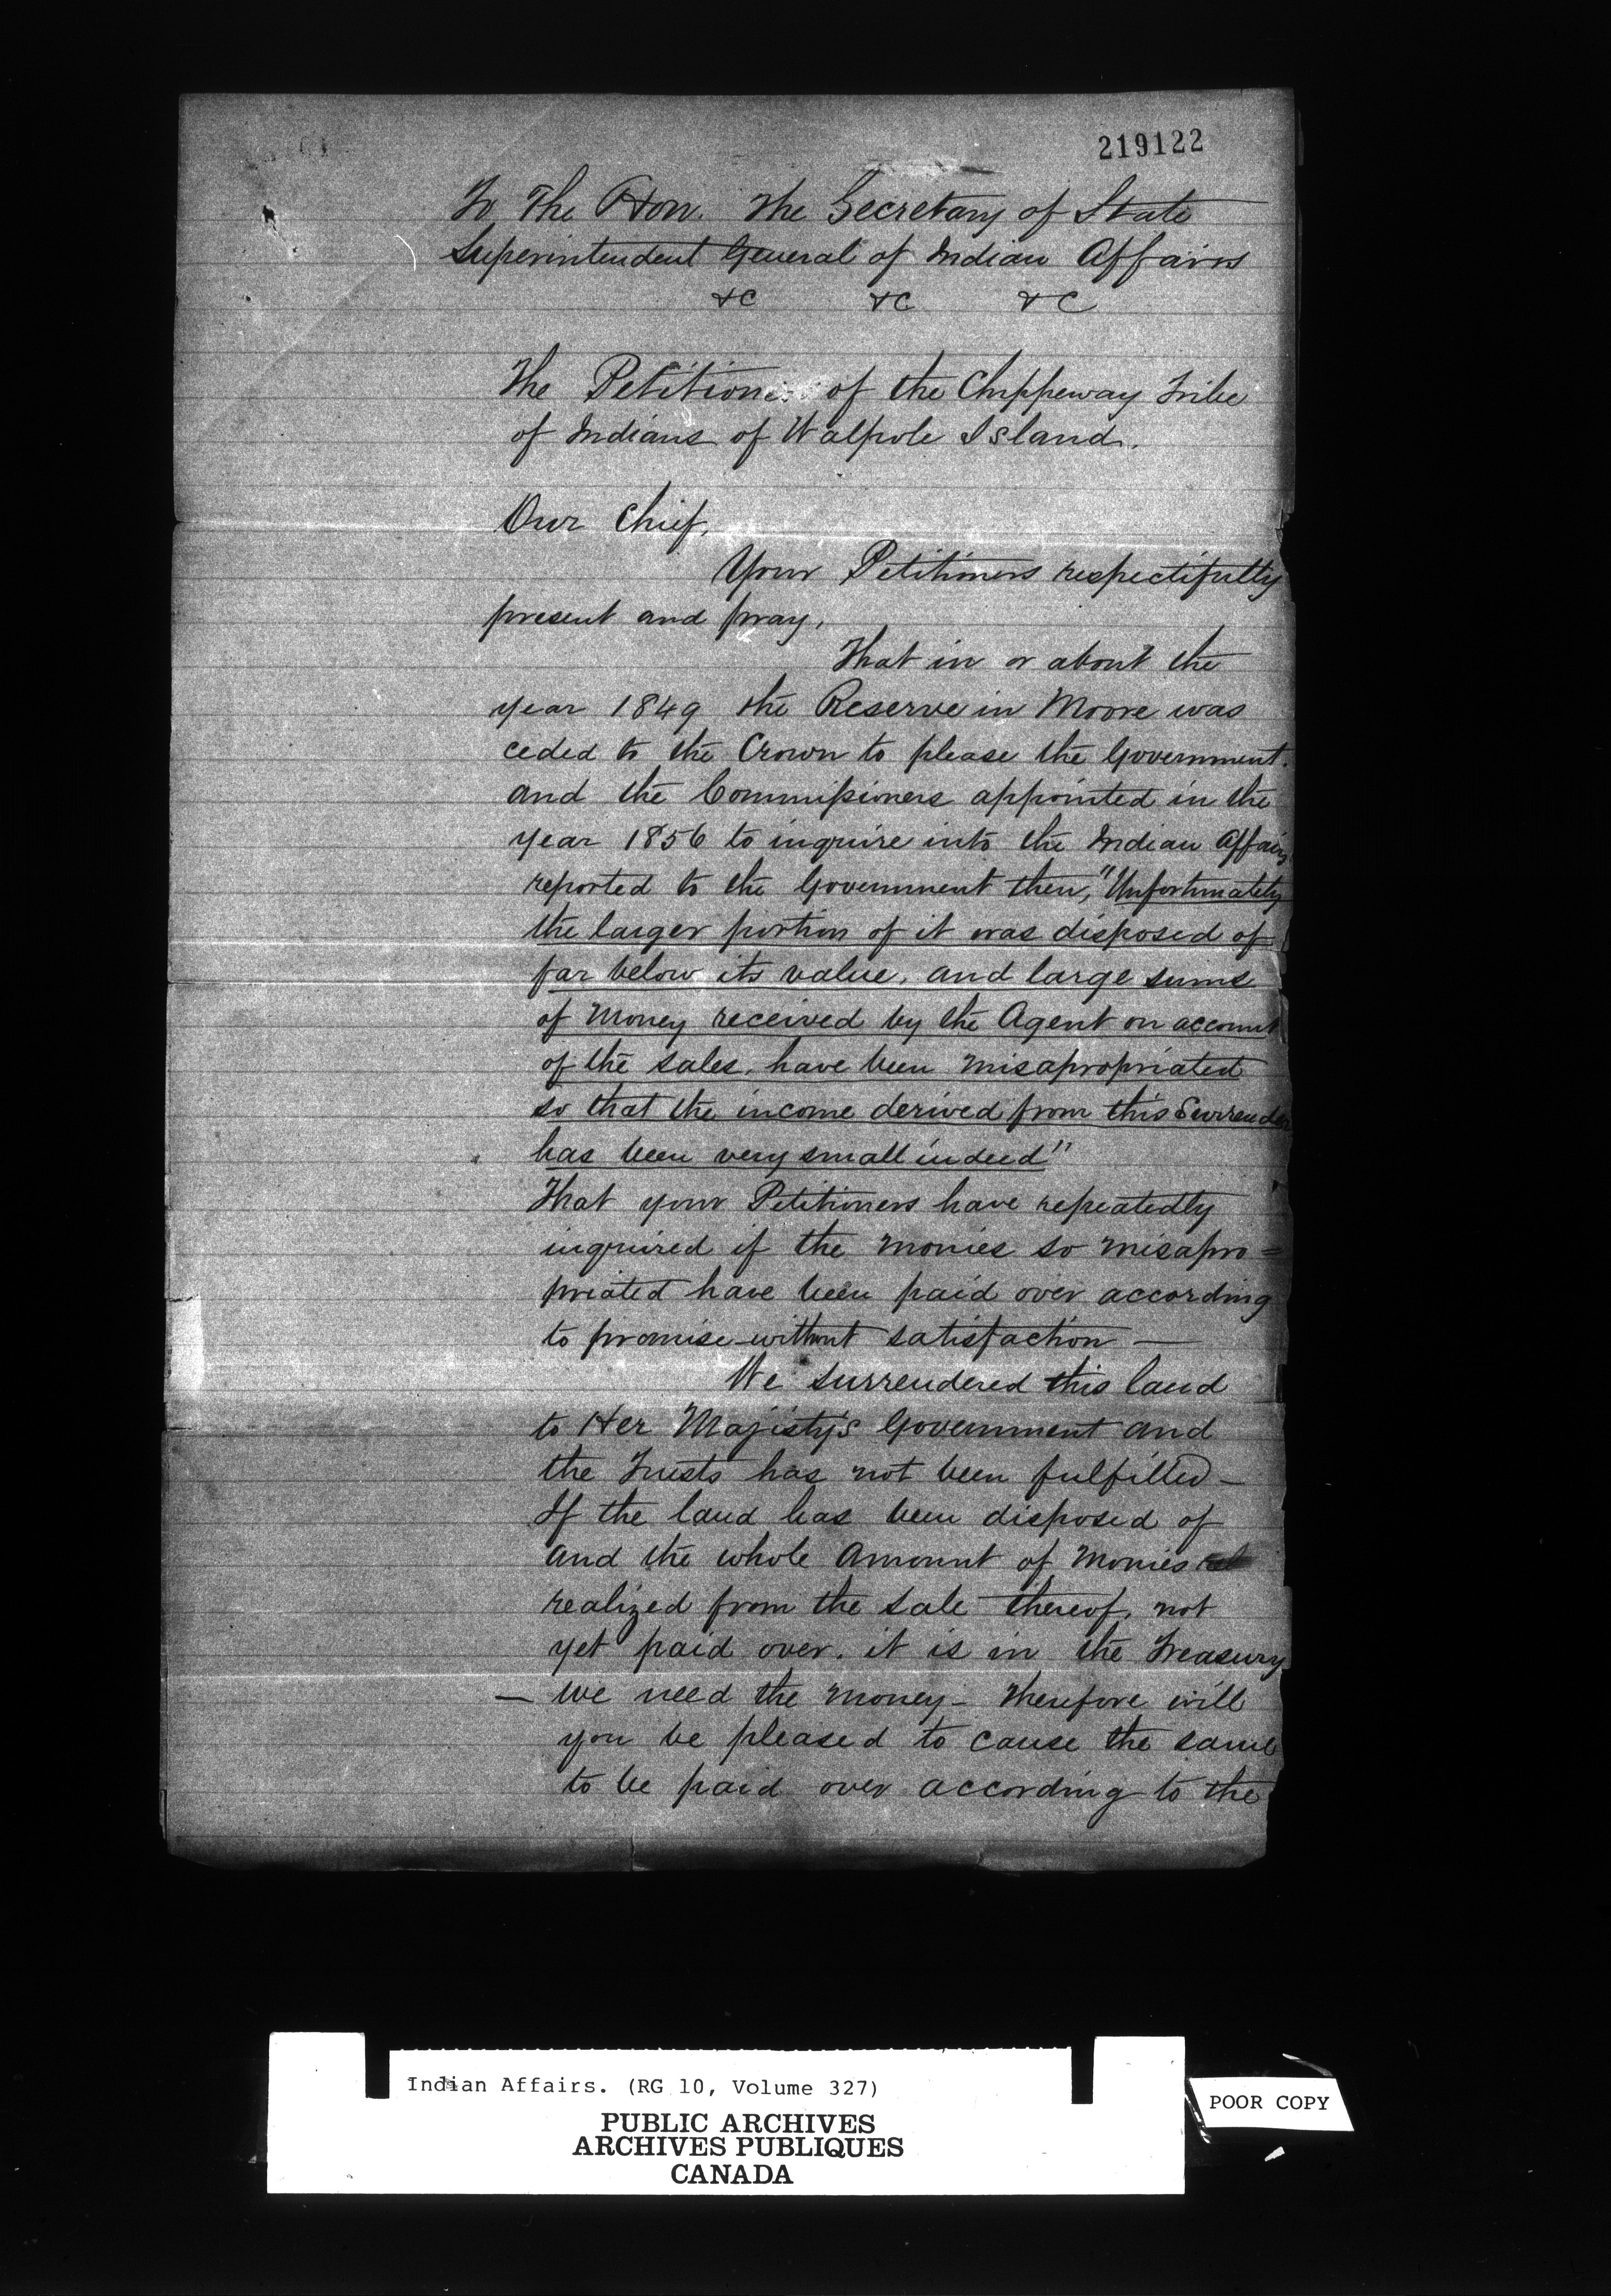 219122
To The Hon. The Secretary of State
Superintendent General of Indian Affairs
&c &c &c
The Petition of the Chippeway Tribe
of Indians of Walpole Island.
Our Chief,
Your Petitioners respectifully
present and pray,
That in or about the
year 1849 the Reserve in Moore was
ceded to the Crown to please the Government.
and the Commissioners appointed in the
year 1856 to inquire into the Indian Affairs
reported to the Government then, "Unfortunately
the larger portion of it was disposed of
far below its value, and large sums
of Money received by the Agent on account
of the sales, have been misapropriated
so that the income derived from this Surrender
has been very small indeed"
That your Petitioners have repeatedly
inquired if the monies so misapro=
priated have been paid over according
to promise without satisfaction —
We surrendered this land
to Her Majisty's Government and
the Trusts has not been fulfilled —
If the land has been disposed of
and the whole Amount of Monies
realized from the sale thereof, not
yet paid over. it is in the Treasury
— We need the money — Therefore will
you be pleased to cause the same
to be paid over according to the
Indian Affairs. (RG 10, Volume 327)
PUBLIC ARCHIVES
ARCHIVES PUBLIQUES
CANADA
POOR COPY